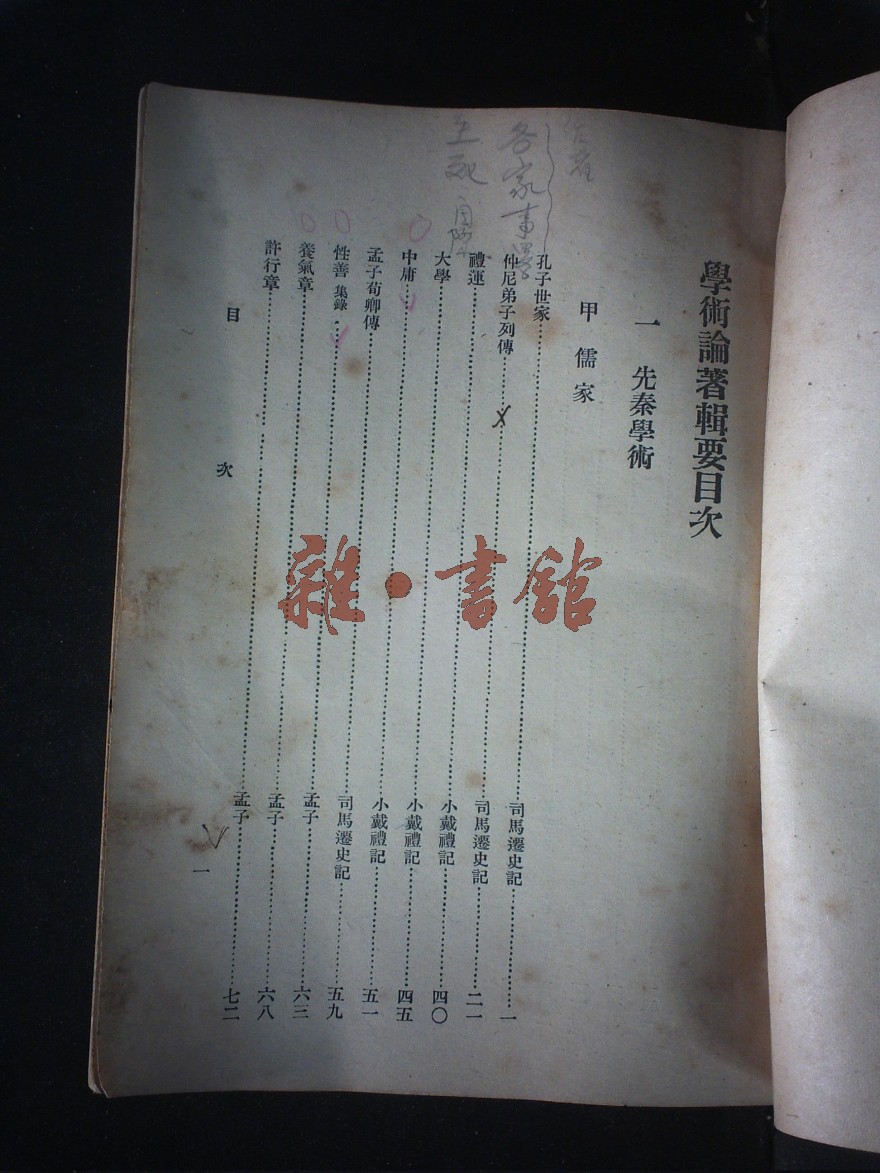 學術論著輯要目次
一 先秦學術
甲 儒家
孔子世家 司馬遷史記 一
仲尼弟子列傳 司馬遷史記 二一
禮運 小戴禮記 四〇
大學 小戴禮記 四五
中庸 小戴禮記 五一
孟子荀卿傳 司馬遷史記 五九
性善 集錄 孟子 六三
養氣章 孟子 六八
許行章 孟子 七二
目次 一
各家事
雜·書館